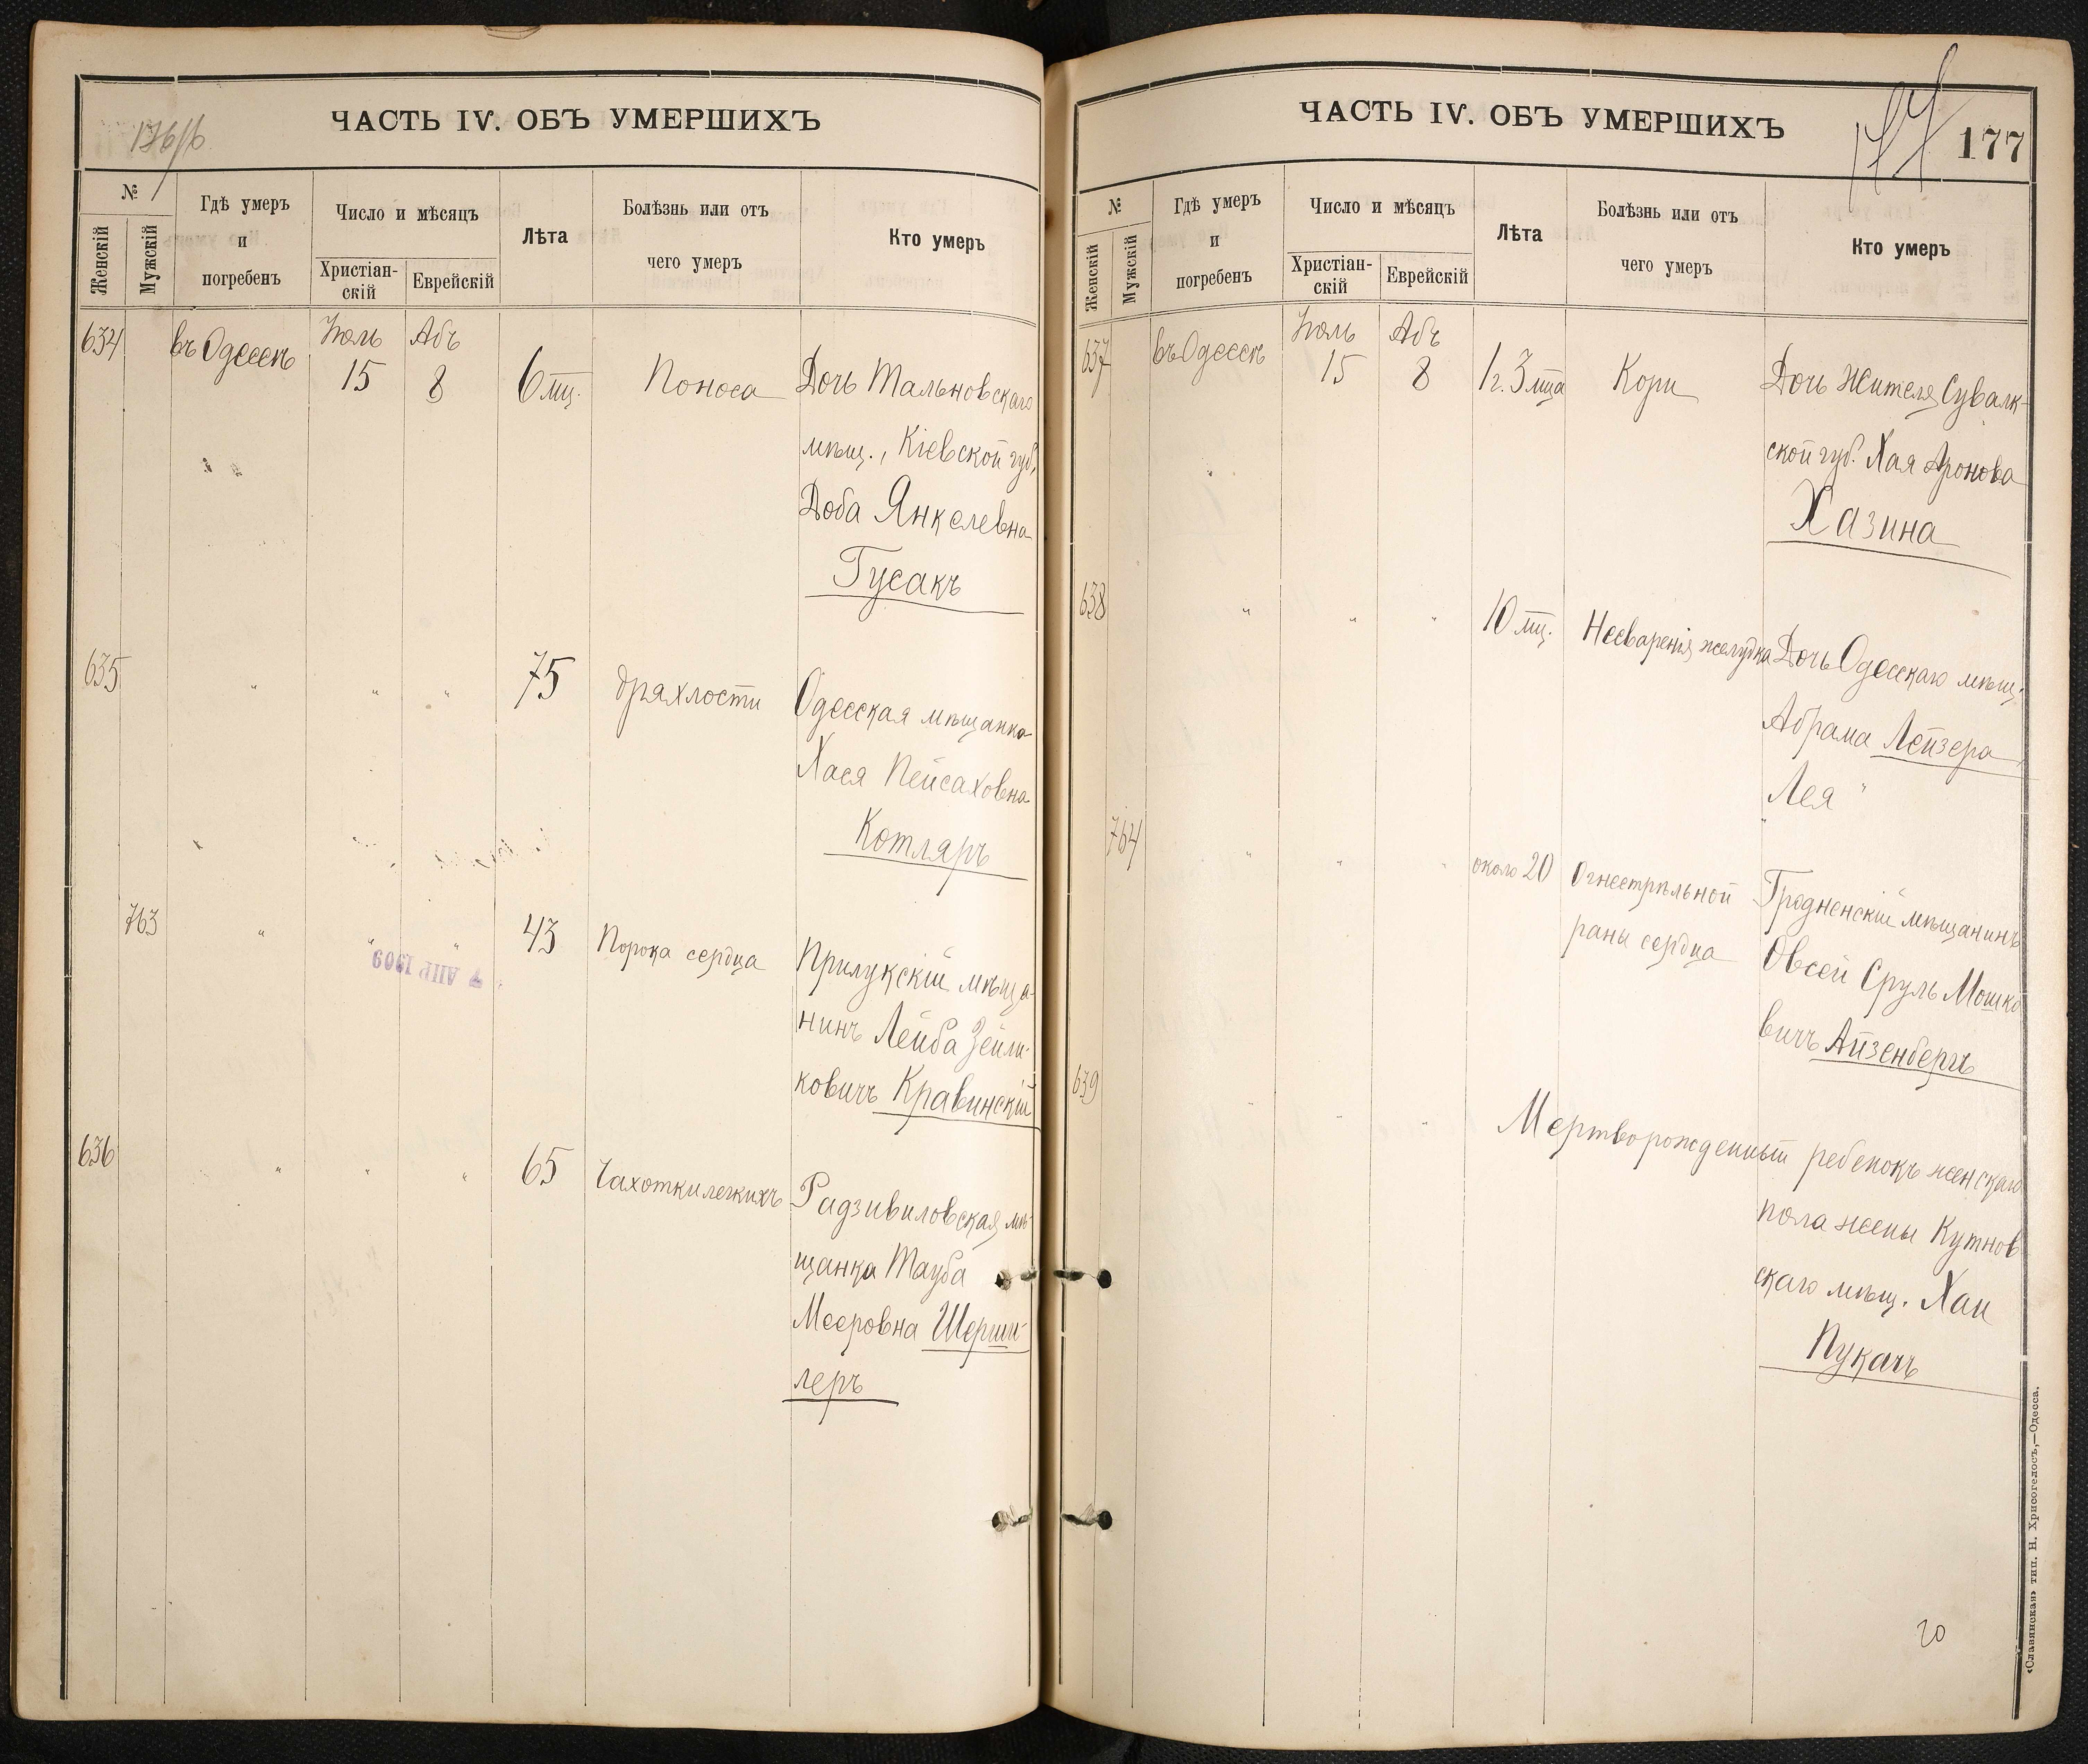 176/б
ЧАСТЬ IV. ОБЪ УМЕРШИХЪ
№
Женскій
Мужскій
Гдѣ умеръ
и
погребенъ
Число и мѣсяцъ
Христіан-
скій
Еврейскій
Лѣта
Болѣзнь или отъ
чего умеръ
Кто умеръ
634
въ Одессѣ
Іюль
15
Абъ
8
6 мц.
Поноса
Дочь Тальновскаго
мѣщ., Кіевской губ.
Доба Янкелевна
Гусакъ
635
" " "
75
дряхлости
Одесская мѣщанка
Хася Пейсаховна
Котляръ
763
" " "
7 АПР 1909
43
Порока сердца
Прилукскій мѣща-
нинъ Лейба Зейли-
ковичъ Кравинскій
636
" " "
65
Чахотки легкихъ
Радзивиловская мѣ-
щанка Тауба
Мееровна Шерши-
леръ
ЧАСТЬ IV. ОБЪ УМЕРШИХЪ
177
177
№
Женскій
Мужскій
Гдѣ умеръ
и
погребенъ
Число и мѣсяцъ
Христіан-
скій
Еврейскій
Лѣта
Болѣзнь или отъ
чего умеръ
Кто умеръ
637
въ Одессѣ
Іюль
15
Абъ
8
1 г. 3 мца
Кори
Дочь жителя Сувалк-
ской губ. Хая Аронова
Хазина
638
" " "
10 мц.
Несваренія желудка
Дочь Одесскаго мѣщ.
Абрама Лейзера
Лея "
764
" " "
около 20
Огнестрѣльной
раны сердца
Гродненскій мѣщанинъ
Овсей Сруль Мошко
вичъ Айзенбергъ
639
" " "
Мертворожденный ребенокъ женскаго
пола жены Кутнов
скаго мѣщ. Хаи
Пукачъ
20
«Славянская» тип. Н. Хрисогелосъ,—Одесса.